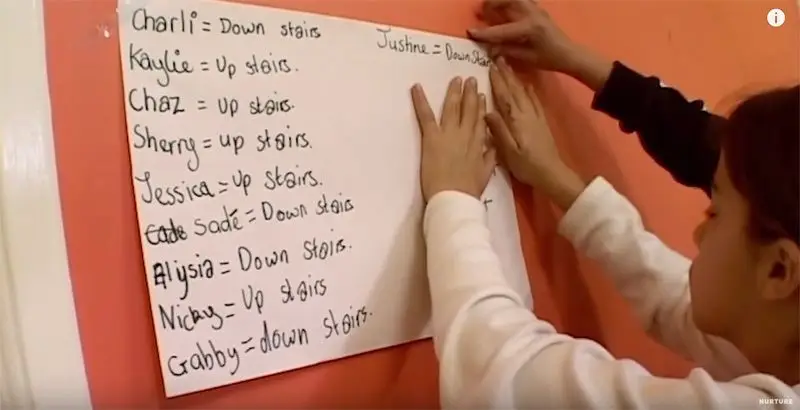 Charli = Down stairs
Kaylie = Up stairs.
Chaz = up stairs.
Sherry = up stairs.
Jessica = up stairs.
Sadé = Down stairs
Alysia = Down stairs.
Nicky = Up stairs
Gabby = down stairs.
Justine = Down Stair
i
NURTURE